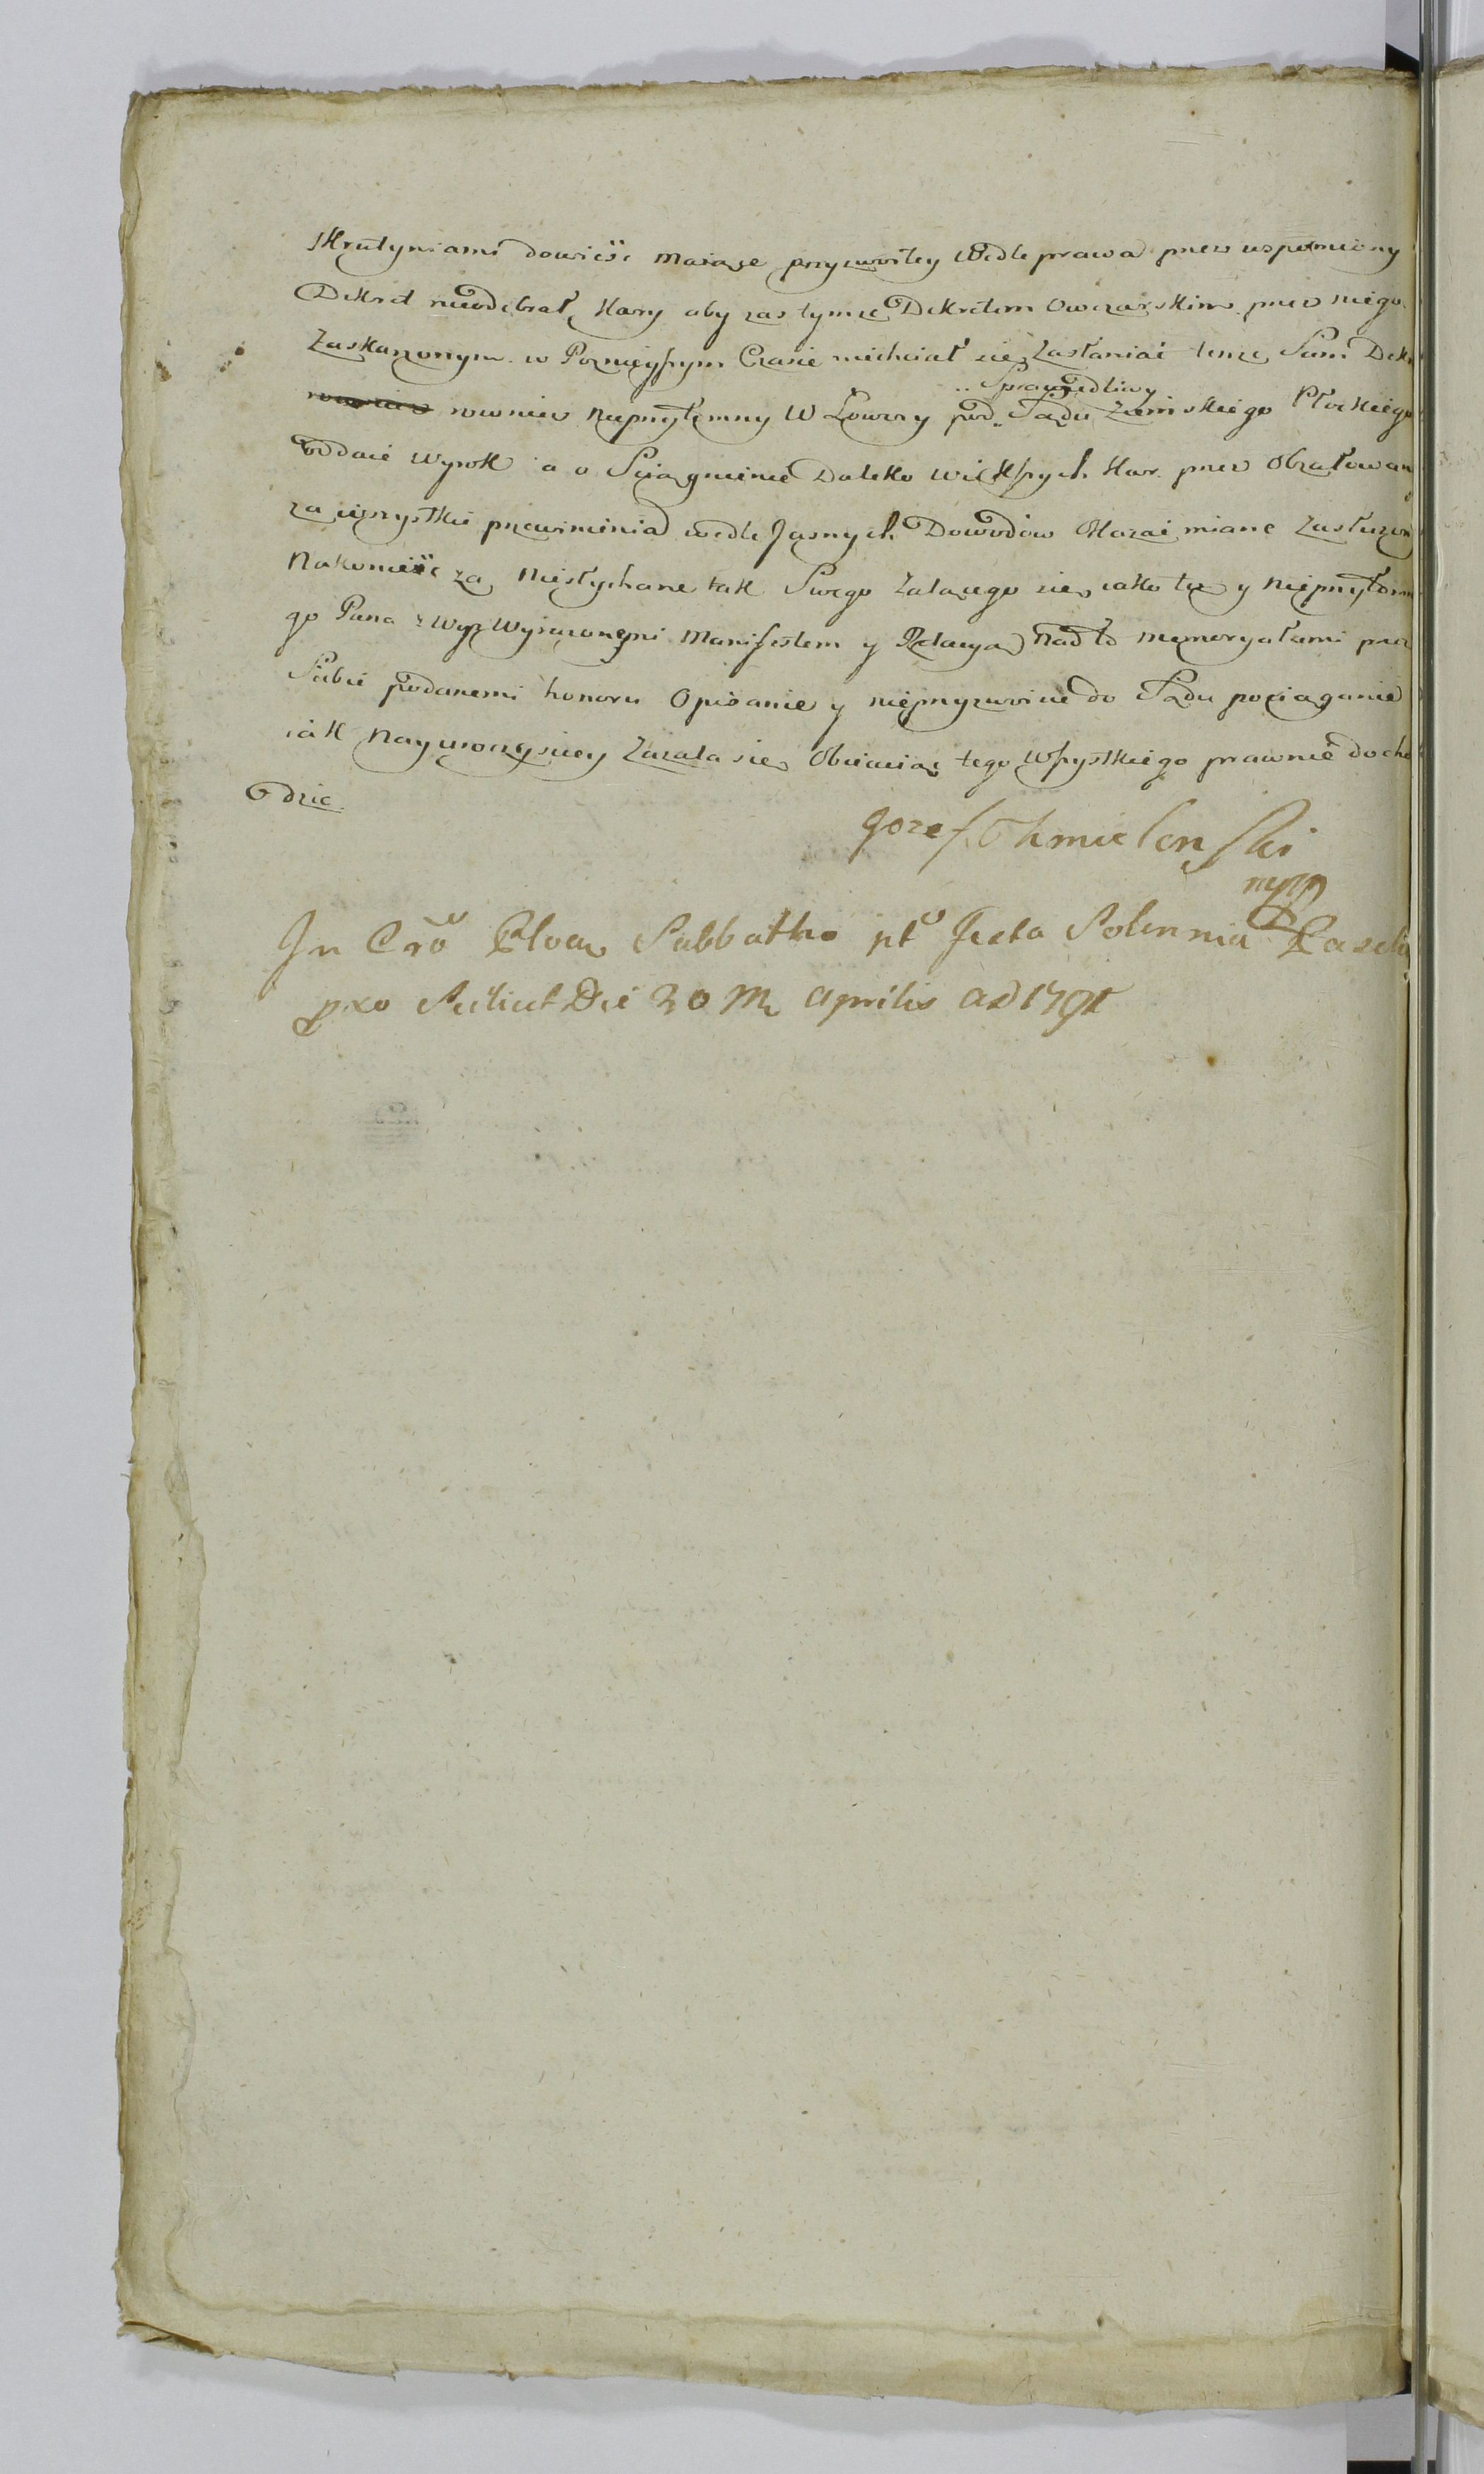 skrutyniami dowieść maiące przyzwoitey wedle prawa przez wspomniony
Dekret nieodebrał kary aby zas tymze Dekretem Owczarskim przez niego
Zaskarzonym w Poznieyszym Czasie niechciał się Zasłaniać tenze Sam Dek
rowniez nieprzytomny W Łowczy pod Sądu Ziemskiego Płockiego
Sprawiedliwy
oddaie wyrok a o Sciągnienie Daleko większych kar przez Obzałowan
za wszystkie przewinienia wedle Jasnych Dowodow Okazac miane Zasłuzon
Nakoniec za niesłychane tak Swego Zalącego się iako tez y nieprzytom
go Pana wyz Wyrazonemi Manifestem y Relacyą nad to memoryałami prze
Siebie podanemi honoru Opisanie y nieprzyzwoite do Sądu pociąganie
iak Nayuroczyściey Zazala się Obiecuiąc tego wszystkiego prawnie docho
dzić
Jozef Chmielenski
mpp
In Cro Ploc Sabbatho pt Festa Solennia Pascha
pxo Scilicet Die 30 M Aprilis AD 1791